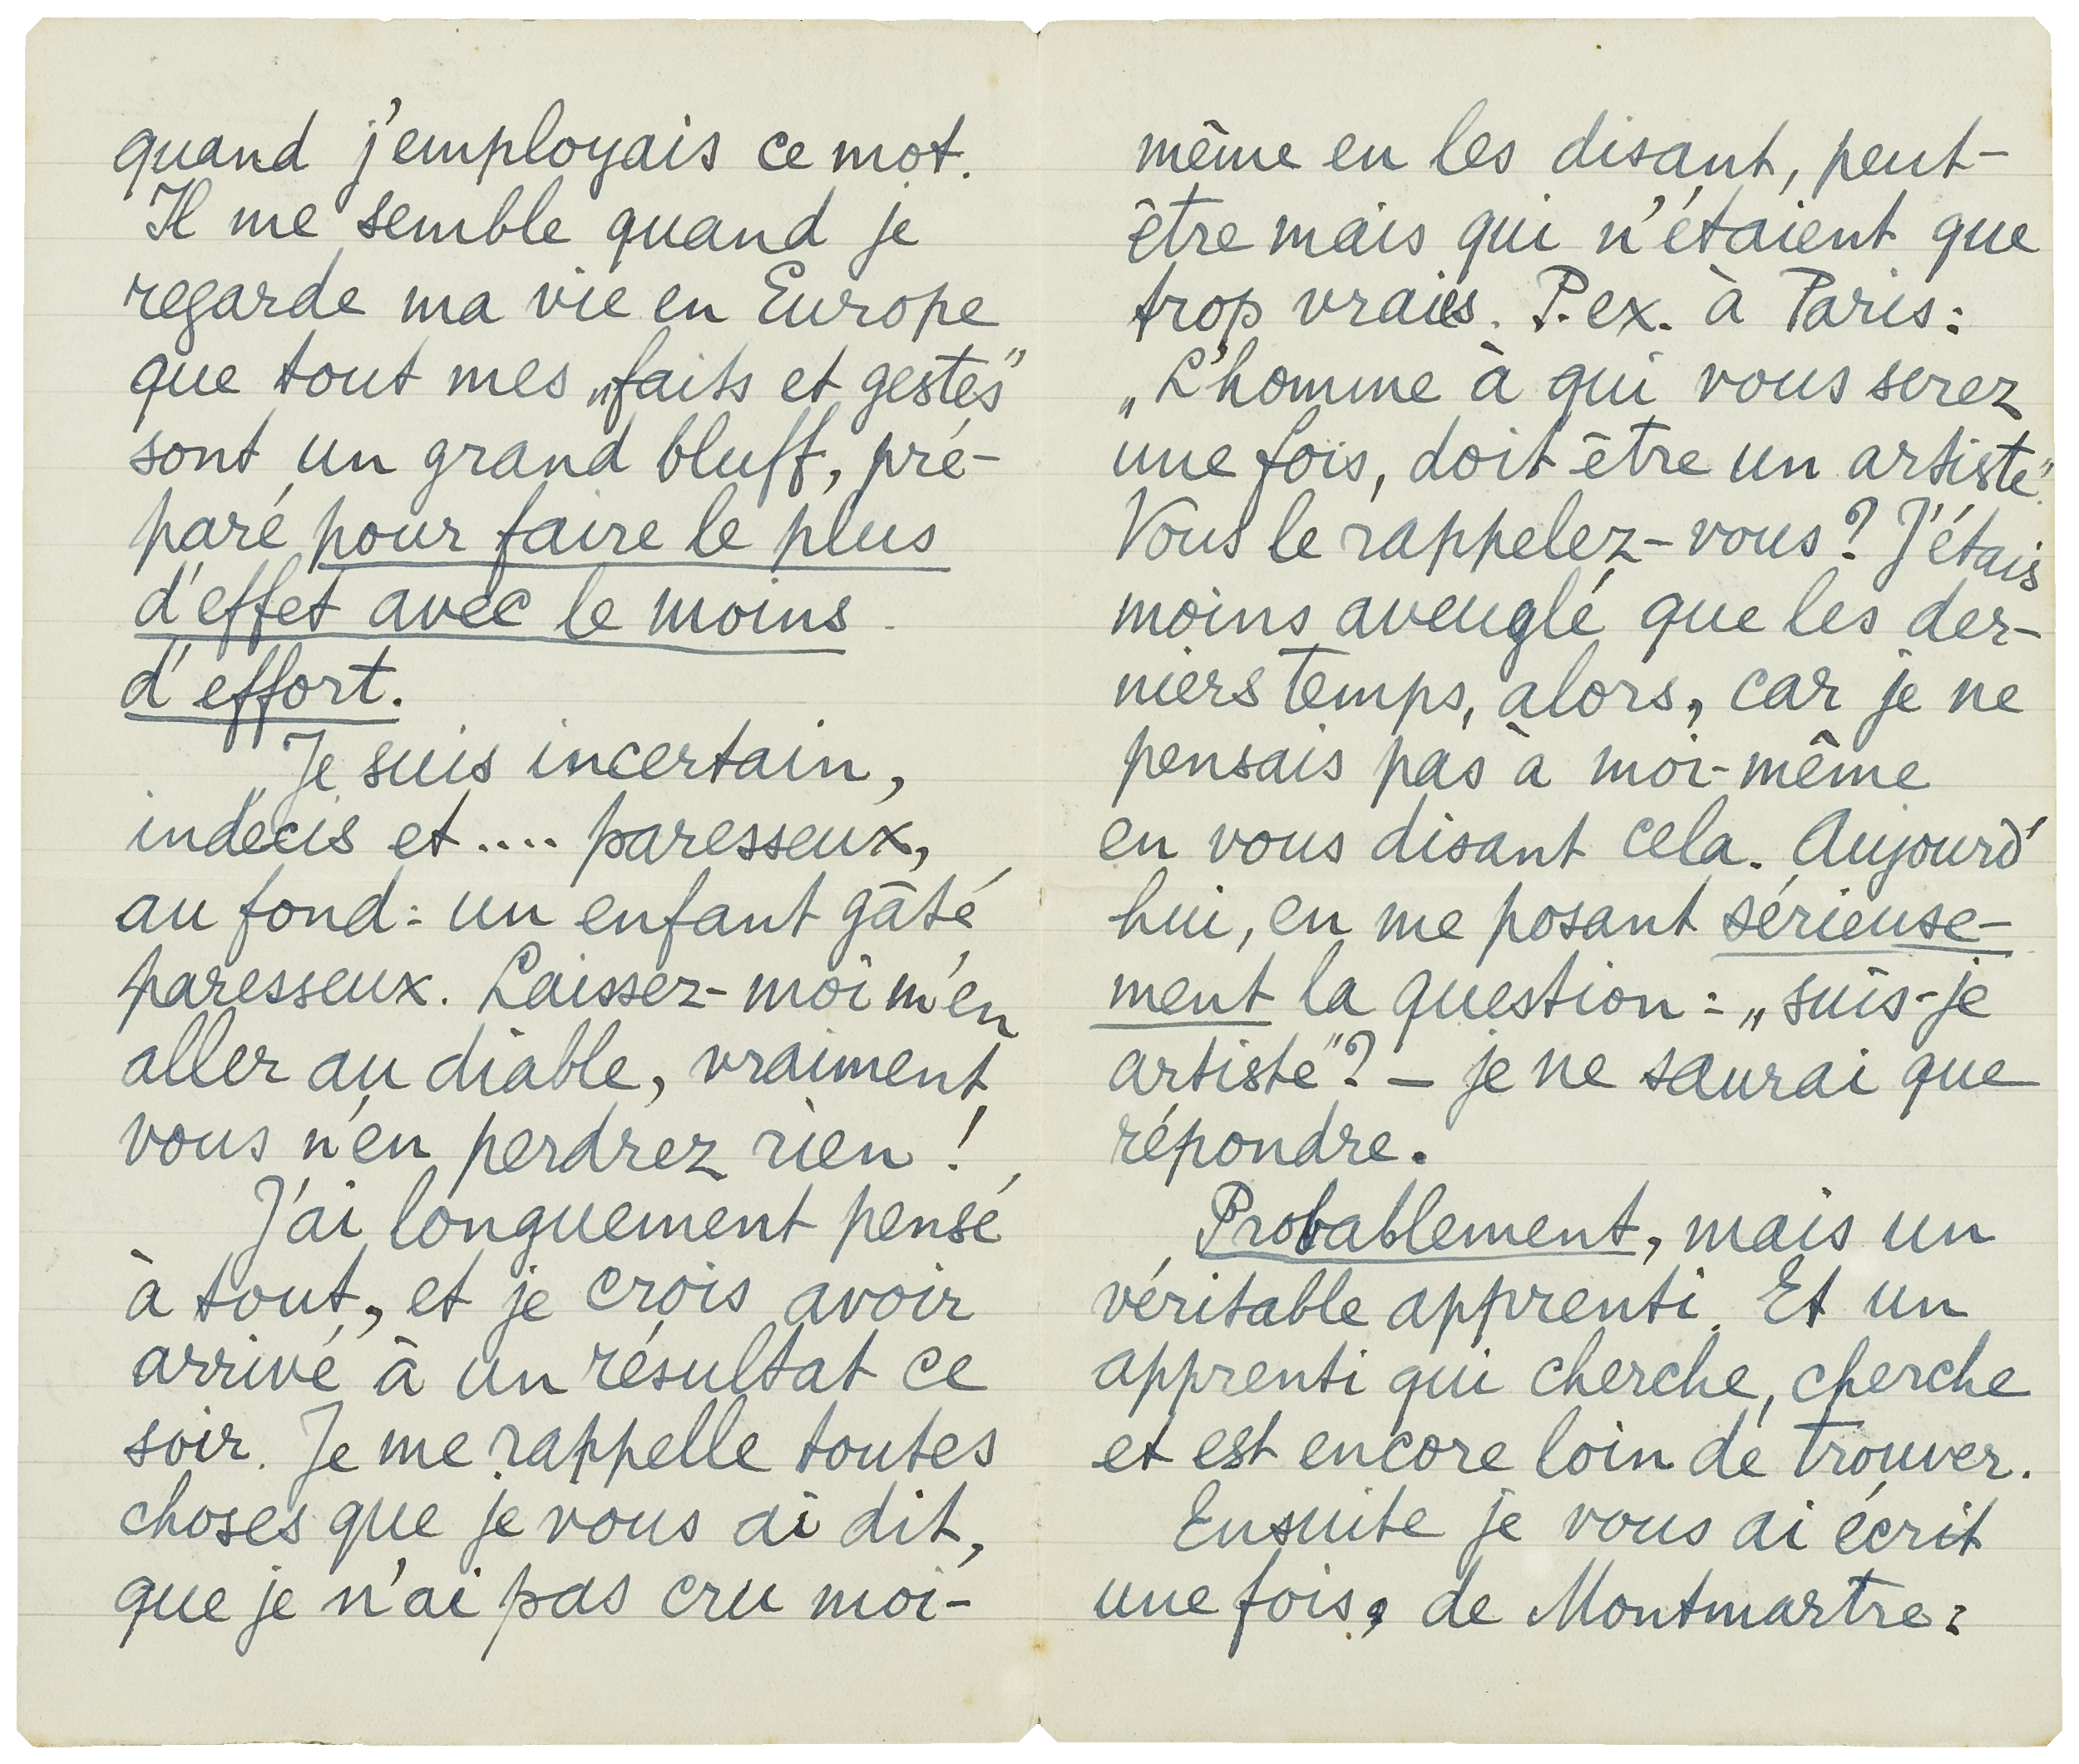 quand j'employais ce mot.
Il me semble quand je
regarde ma vie en Europe
que tout mes „faits et gestes"
sont un grand bluff, pré-
paré pour faire le plus
d'effet avec le moins
d'effort.
Je suis incertain,
indecis et .... paresseux,
au fond: un enfant gâté
paresseux. Laissez-moi m'en
aller au diable, vraiment
vous n'en perdrez rien !
J'ai longuement pensé
à tout, et je crois avoir
arrivé à un résultat ce
soir. Je me rappelle toutes
choses que je vous ai dit,
que je n'ai pas cru moi-
même en les disant, peut-
être mais qui n'étaient que
trop vraies. P. ex. à Paris:
„L'homme à qui vous serez
une fois, doit être un artiste".
Vous le rappelez-vous? J'étais
moins aveuglé que les der-
niers temps, alors, car je ne
pensais pas à moi-même
en vous disant cela. Aujourd'
hui, en me posant sérieuse-
ment la question: „suis-je
artiste"? — je ne saurai que
répondre.
Probablement, mais un
véritable apprenti. Et un
apprenti qui cherche, cherche
et est encore loin de trouver.
Ensuite je vous ai écrit
une fois, de Montmartre: